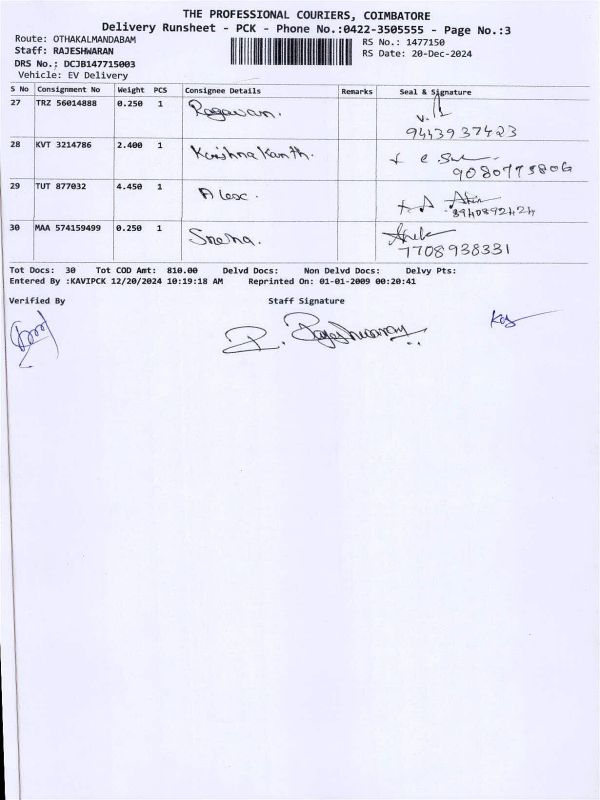 THE PROFESSIONAL COURIERS, COIMBATORE
Delivery Runsheet - PCK - Phone No.:0422-3505555 - Page No.:3
Route: OTHAKALMANDABAM
RS No.: 1477150
Staff: RAJESHWARAN
RS Date: 20-Dec-2024
DRS No.: DCJB147715003
Vehicle: EV Delivery
S No Consignment No Weight PCS Consignee Details Remarks Seal & Signature
27 TRZ 56014888 0.250 1 Ragavan.
9443937423
28 KVT 3214786 2.400 1 Krishna Kanth.
9080775806
29 TUT 877032 4.450 1 Alex.
8940892424
30 MAA 574159499 0.250 1 Sneha.
7708938331
Tot Docs: 30 Tot COD Amt: 810.00 Delvd Docs: Non Delvd Docs: Delvy Pts:
Entered By :KAVIPCK 12/20/2024 10:19:18 AM Reprinted On: 01-01-2009 00:20:41
Verified By Staff Signature
P. Rajeshwaran